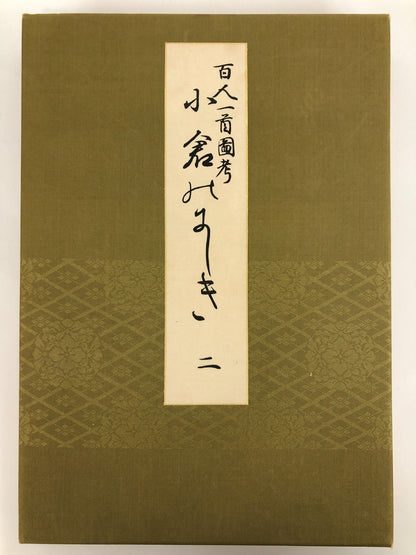 百人一首圖考
小倉のにしき 二